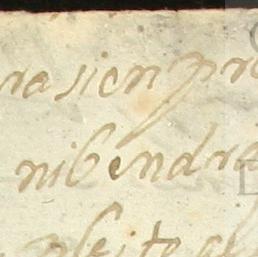 ra sienpre
ni bendra
pleito